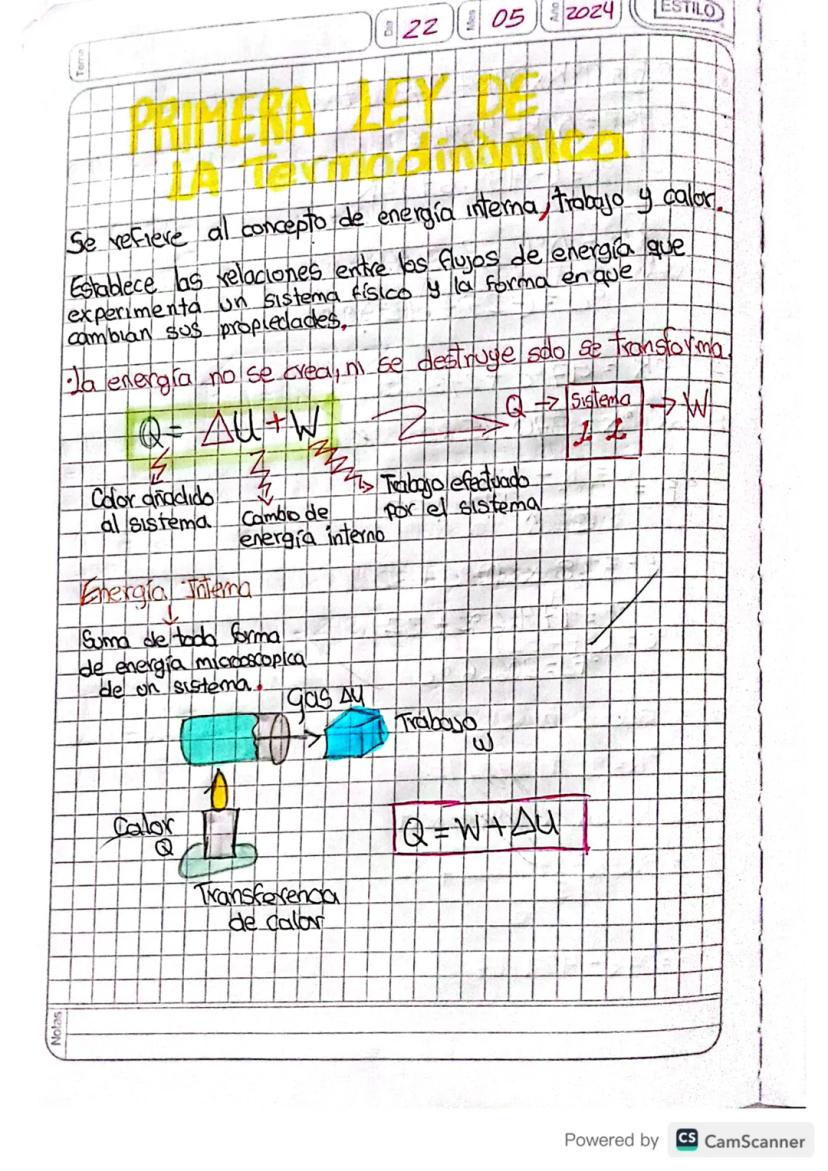 Tema
Día 22
Mes 05
Año 2024
ESTILO
PRIMERA LEY DE
LA Termodinámica
Se refiere al concepto de energía interna, trabajo y calor.
Establece las relaciones entre los flujos de energía que
experimenta un sistema físico y la forma en que
cambian sus propiedades.
·La energía no se crea, ni se destruye solo se transforma.
Q = ΔU + W
Q → Sistema → W
Calor añadido
al sistema
Cambio de
energía interno
Trabajo efectuado
por el sistema
Energía Interna
Suma de toda forma
de energía microscopica
de un sistema.
gas ΔU
Trabajo
W
Calor
Q
Q = W + ΔU
Transferencia
de calor
Notas
Powered by CS CamScanner